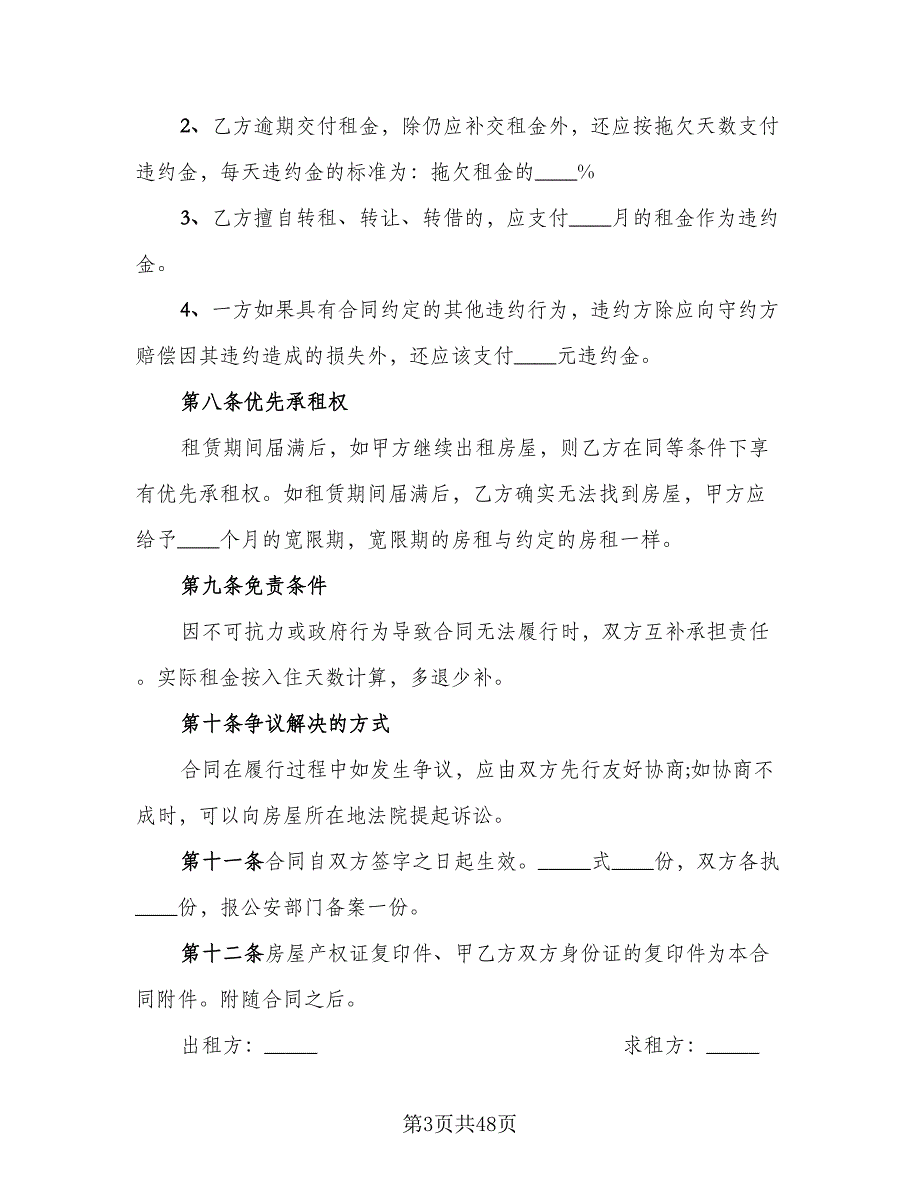 2、乙方逾期交付租金，除仍应补交租金外，还应按拖欠天数支付
违约金，每天违约金的标准为：拖欠租金的____%
3、乙方擅自转租、转让、转借的，应支付____月的租金作为违约
金。
4、一方如果具有合同约定的其他违约行为，违约方除应向守约方
赔偿因其违约造成的损失外，还应该支付____元违约金。
第八条优先承租权
租赁期间届满后，如甲方继续出租房屋，则乙方在同等条件下享
有优先承租权。如租赁期间届满后，乙方确实无法找到房屋，甲方应
给予____个月的宽限期，宽限期的房租与约定的房租一样。
第九条免责条件
因不可抗力或政府行为导致合同无法履行时，双方互补承担责任
。实际租金按入住天数计算，多退少补。
第十条争议解决的方式
合同在履行过程中如发生争议，应由双方先行友好协商;如协商不
成时，可以向房屋所在地法院提起诉讼。
第十一条合同自双方签字之日起生效。_____式____份，双方各执
____份，报公安部门备案一份。
第十二条房屋产权证复印件、甲乙方双方身份证的复印件为本合
同附件。附随合同之后。
出租方：_____ 求租方：_____
第3页共48页